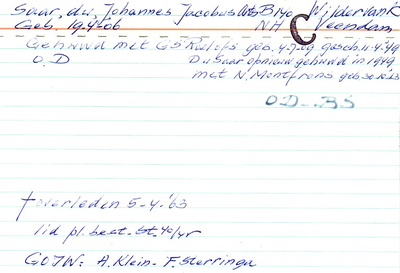 Saar, du, Johannes Jacobus B140 Wijdervank
Geb. 19-4-06 NH C Veendam,
Gehuwd met G S Roelofs geb. 4-7-19 gesch. 11-4-49
O.D Du Saar opnieuw gehuwd in 1949
met N. Montfrons geb 30.10.13
O D - BS
† overleden 5-4-'63
lid pl. best. St. 40/41
GOIW: A. Klein - F. Sterringa